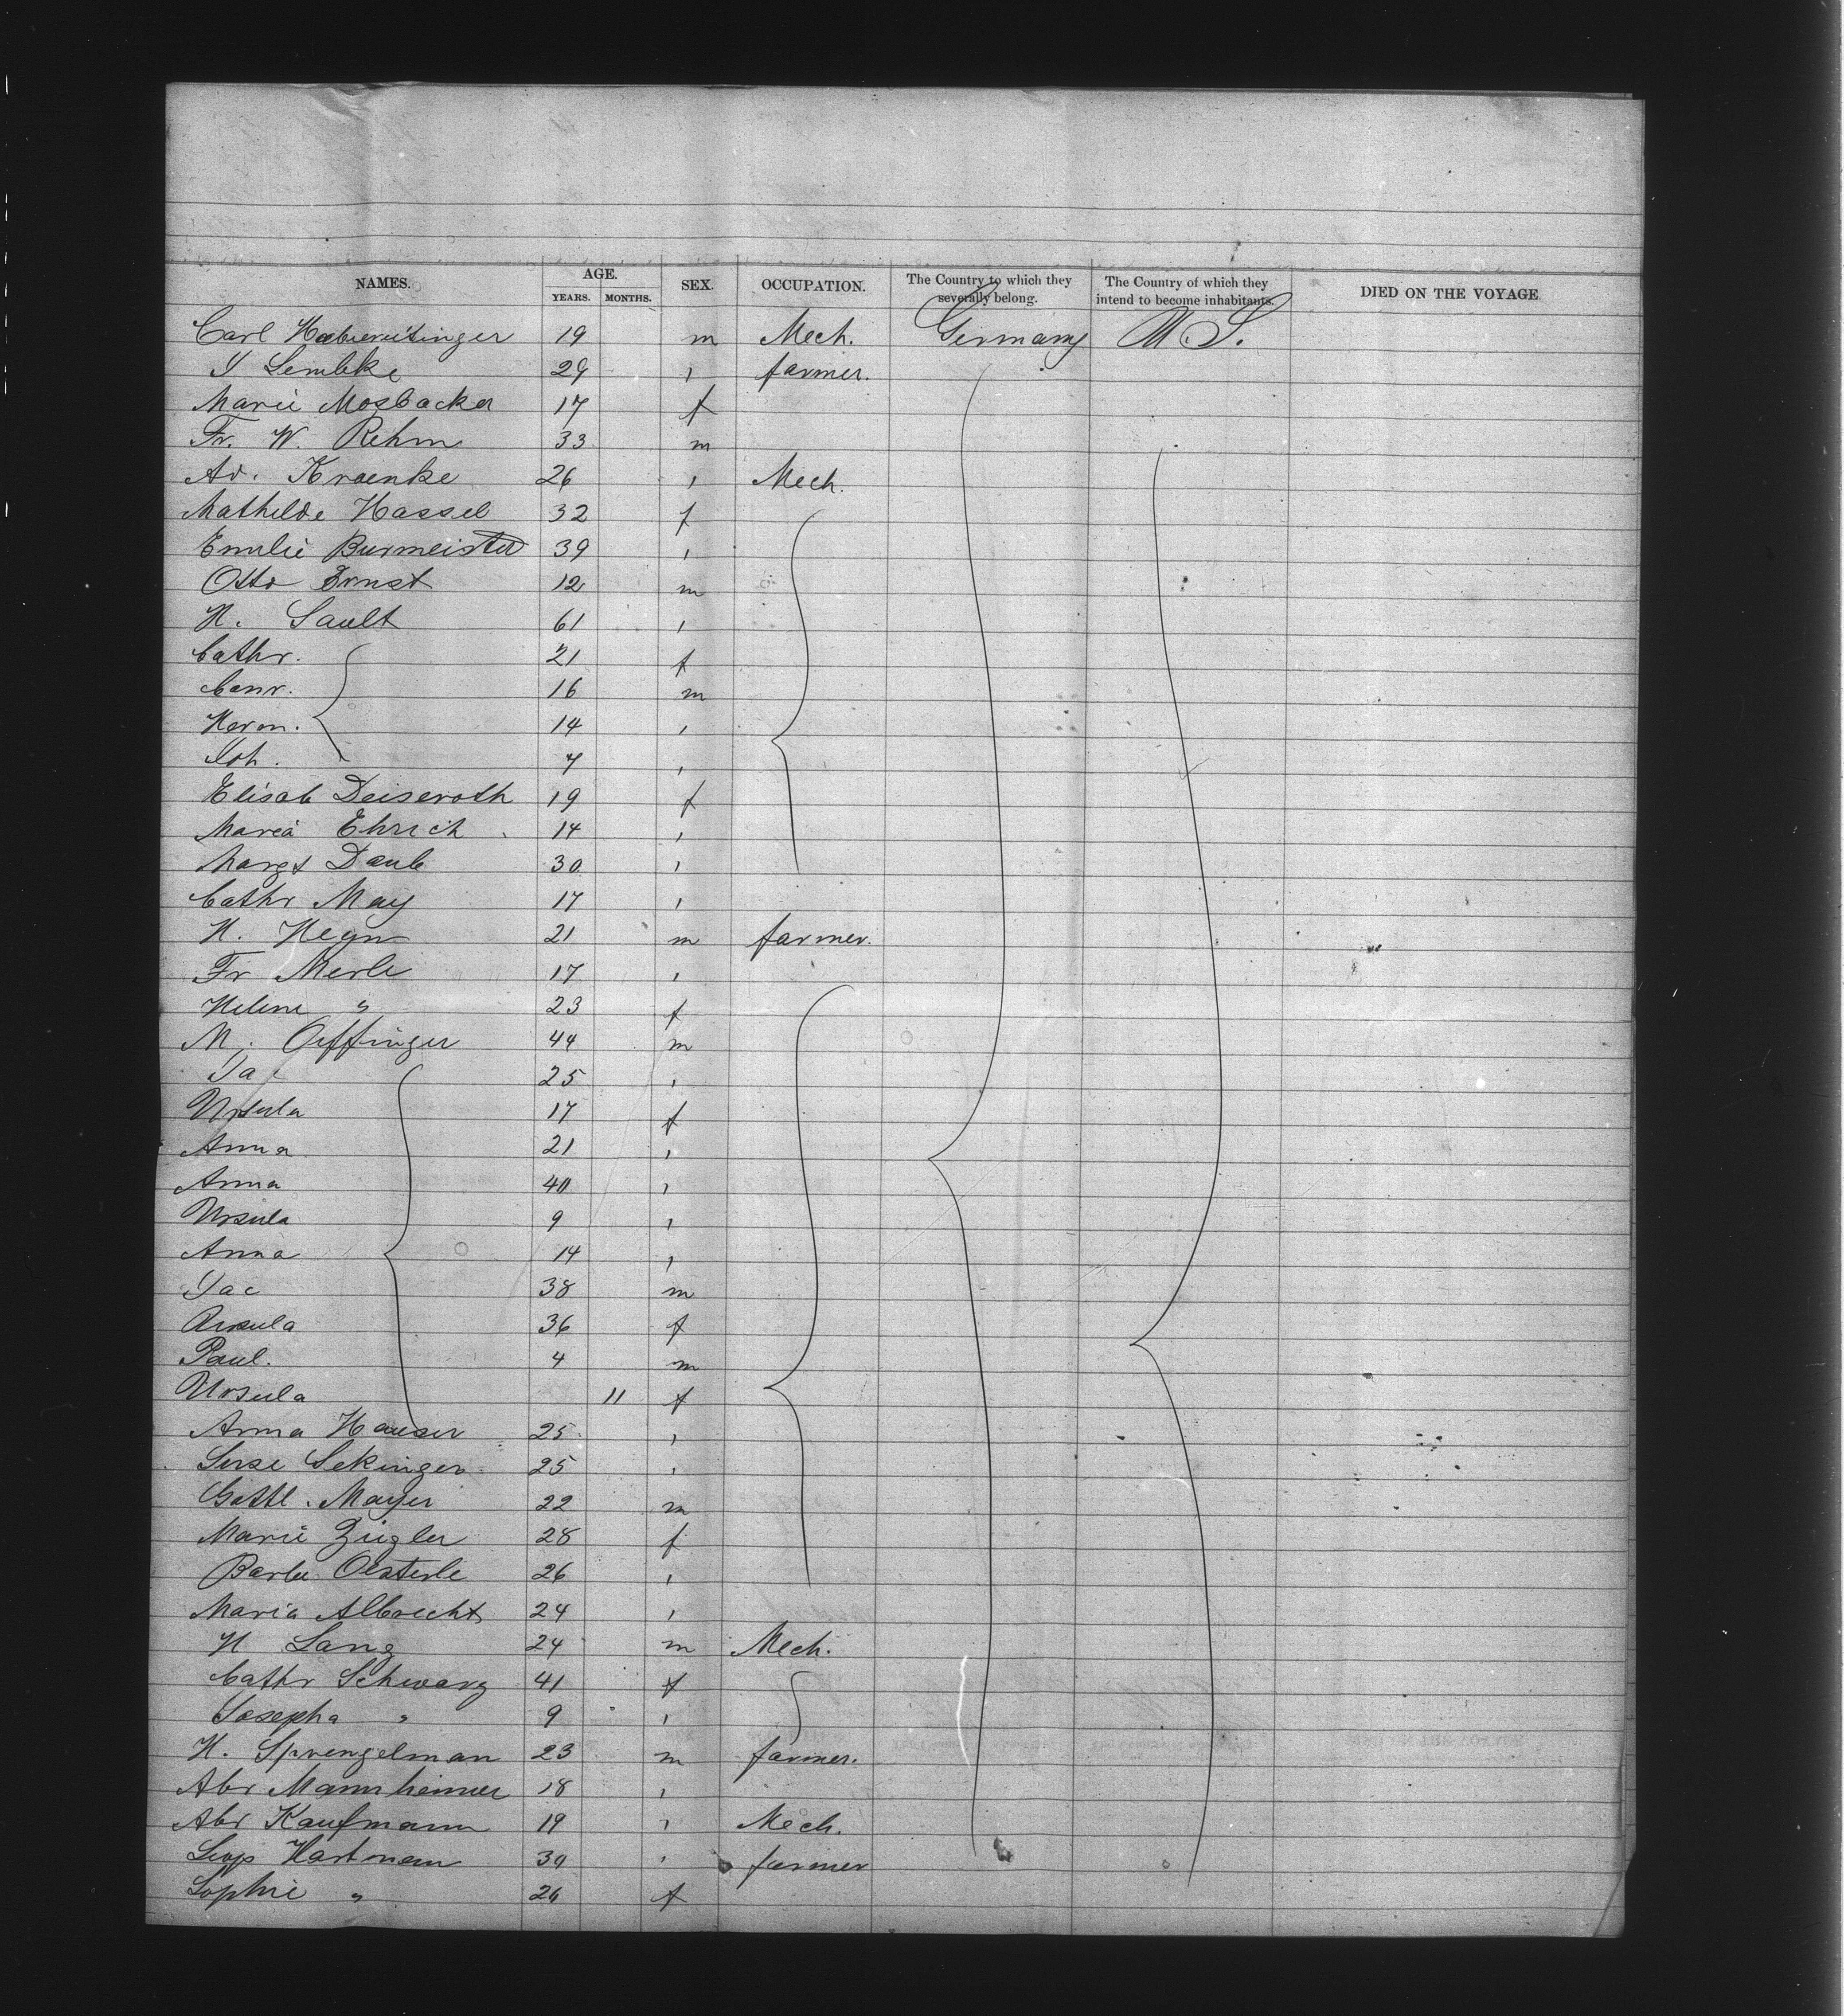 NAMES. AGE. SEX. OCCUPATION. The Country to which they severally belong. The Country of which they intend to become inhabitants. DIED ON THE VOYAGE
YEARS. MONTHS.
Carl 19 m Mech. Germany U.S.
J Lembke 29 " farmer.
Marie Mosbacker 17 f
Fr. W. Rehm 33 m
Ad. Kraenke 26 " Mech.
Mathilde Hassel 32 f
Emilie Burmeister 39 "
Otto Ernst 12 m
H. Sault 61 "
Cathr. 21 f
Conr. 16 m
Herm. 14 "
Joh. 7 "
Elisab Deiseroth 19 f
Maria Ehrich 14 "
Margt Daub 30 "
Cathr May 17 "
H. Heyn 21 m farmer.
Fr Merle 17 "
Helene " 23 f
M. Oeffinger 44 m
Jac 25 "
Ursula 17 f
Anna 21 "
Anna 40 "
Ursula 9 "
Anna 14 "
Jac 38 m
Ursula 36 f
Paul. 4 m
Ursula 11 f
Anna Hauser 25 "
Sekinger 25 "
Gottl. Mayer 22 m
Marie Ziegler 28 f
Barb. Oesterle 26 "
Maria Albrecht 24 "
H Lang 24 m Mech.
Cathr Schwarz 41 f
Josepha " 9 "
H. Sprengelman 23 m farmer.
Abr Mannheimer 18 "
Abr Kaufmann 19 " Mech.
Leop Hartmann 30 " farmer
Sophie " 26 f